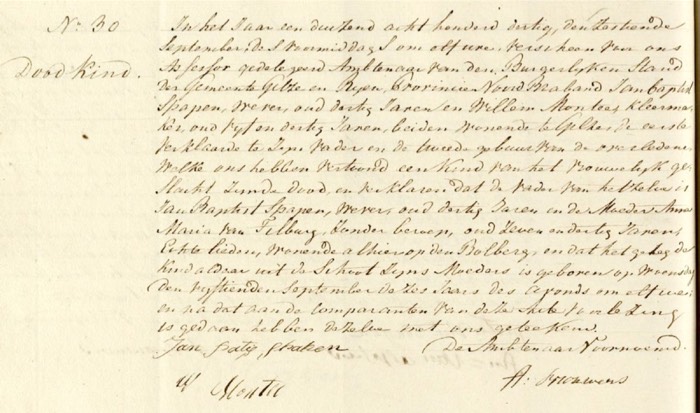 No. 30
Dood kind.
In het Jaar een duizend acht honderd dertig, den zestiende
September, des voormiddags om elf uren, verscheen voor ons
Assessor gedelegeerd Ambtenaar van den Burgerlyken Stand
der Gemeente Gilze en Ryen, Provincie Noord Braband Jan Baptist
Spapen, Wever, oud dertig Jaren en Willem Montees, kleerma-
ker, oud vyf en dertig Jaren, beiden wonende te Gilze, de eerste
verklaarde te zyn vader en de tweede gebuur van de overledene
Welke ons hebben vertoond een Kind van het vrouwelyk ge-
slacht zynde dood, en verklaren dat de vader van hetzelve is
Jan Baptist Spapen, Wever, oud dertig Jaren en de Moeder Anna
Maria van Tilburg, zonder beroep, oud zeven en dertig Jaren,
Echte lieden, wonende alhier op den Bolberg, en dat het gezegde
kind aldaar uit de Schoot zyns Moeders is geboren op woensdag
den vyftienden September dezes Jaars des avonds om elf uren
en na dat aan de comparanten van deze Acte voorlezing
is gedaan hebben dezelve met ons geteekend.
Jan spapen De Ambtenaar Voornoemd.
W Montee A: Brouwers